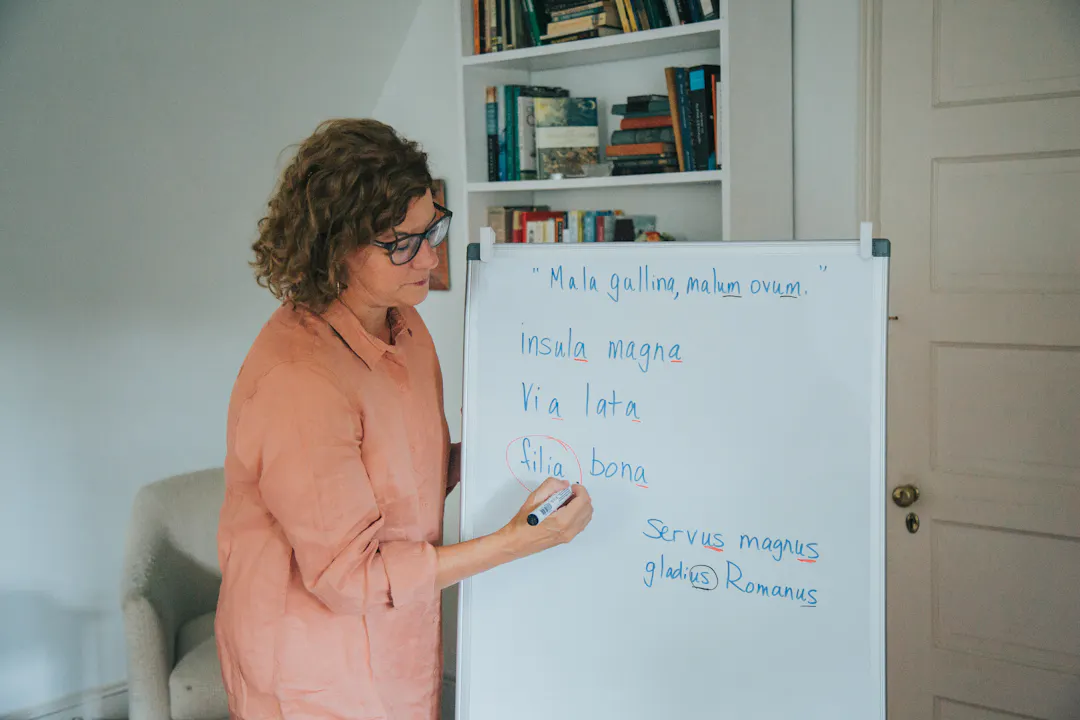 "Mala gallina, malum ovum."
insula magna
Via lata
filia bona
Servus magnus
gladius Romanus